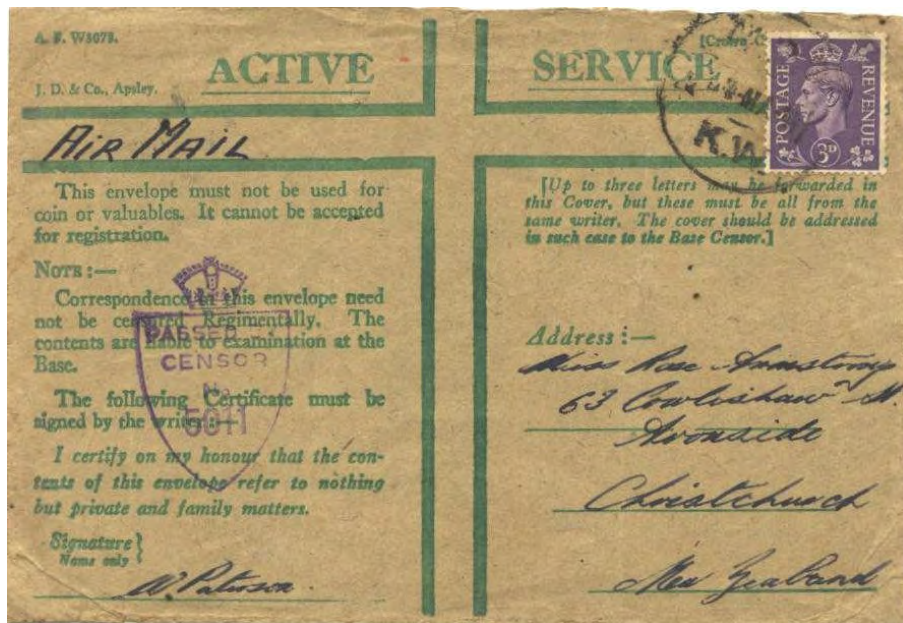 A. F. W3078.
J. D. & Co., Apsley.
ACTIVE SERVICE
[Crown
POSTAGE REVENUE
3D
K.W.
AIR MAIL
This envelope must not be used for
coin or valuables. It cannot be accepted
for registration.
NOTE :—
Correspondence in this envelope need
not be censored Regimentally. The
contents are liable to examination at the
Base.
The following Certificate must be
signed by the writer :—
I certify on my honour that the con-
tents of this envelope refer to nothing
but private and family matters.
Signature }
Name only
W. Paterson.
PASSED
CENSOR
No
5011
[Up to three letters may be forwarded in
this Cover, but these must be all from the
same writer. The cover should be addressed
in such case to the Base Censor.]
Address :—
Miss Rose Armstrong
63 Cowlishaw St.
Avonside
Christchurch
New Zealand